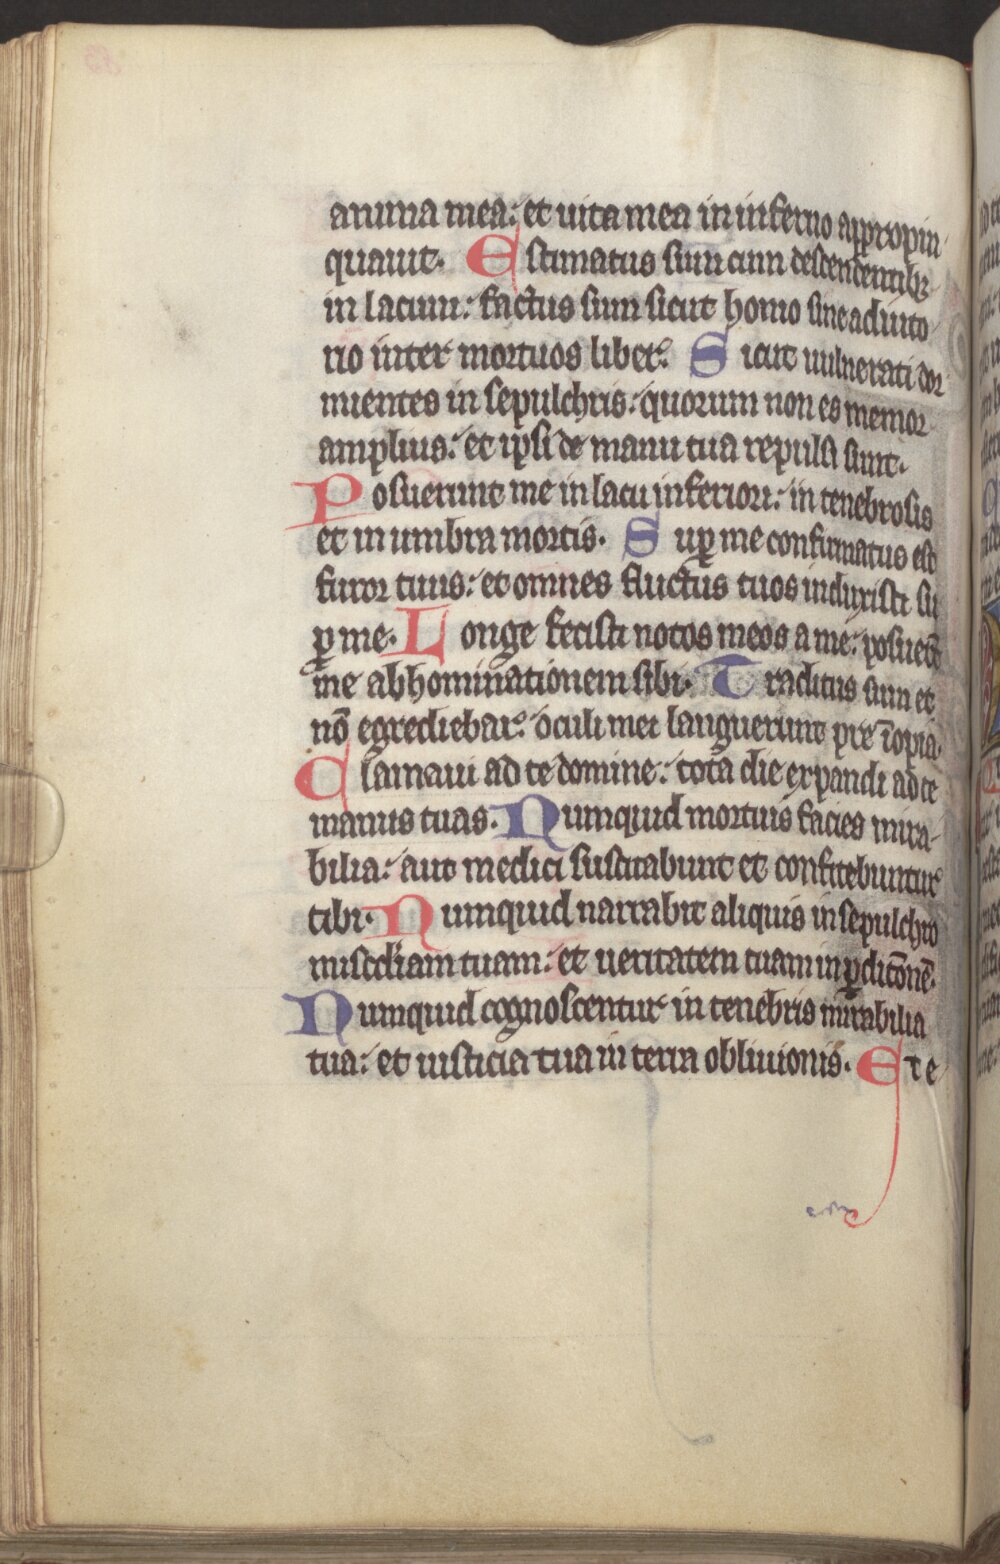 anima mea: et uita mea in inferno appropin
quauit. Estimatus sum cum descendentibꝫ
in lacum: factus sum sicut homo sine adiuto
rio inter mortuos liber. Sicut uulnerati dor
mientes in sepulchris: quorum non es memor
amplius: et ipsi de manu tua repulsi sunt.
Posuerunt me in lacu inferiori: in tenebrosis
et in umbra mortis. Suꝑ me confirmatus est
furor tuus: et omnes fluctus tuos induxisti su
ꝑ me. Longe fecisti notos meos a me: posuer̄t
me abhominationem sibi. Traditus sum et
nō egrediebar: oculi mei languerunt pre īopia.
Clamaui ad te domine: tota die expandi ad te
manus tuas. Numquid mortuis facies mira-
bilia: aut medici suscitabunt et confitebuntur
tibi. Numquid narrabit aliquis in sepulchro
mis̄cdiam tuam: et ueritatem tuam in ꝑditōnē.
Numquid cognoscentur in tenebris mirabilia
tua: et iusticia tua in terra obliuionis. Et e